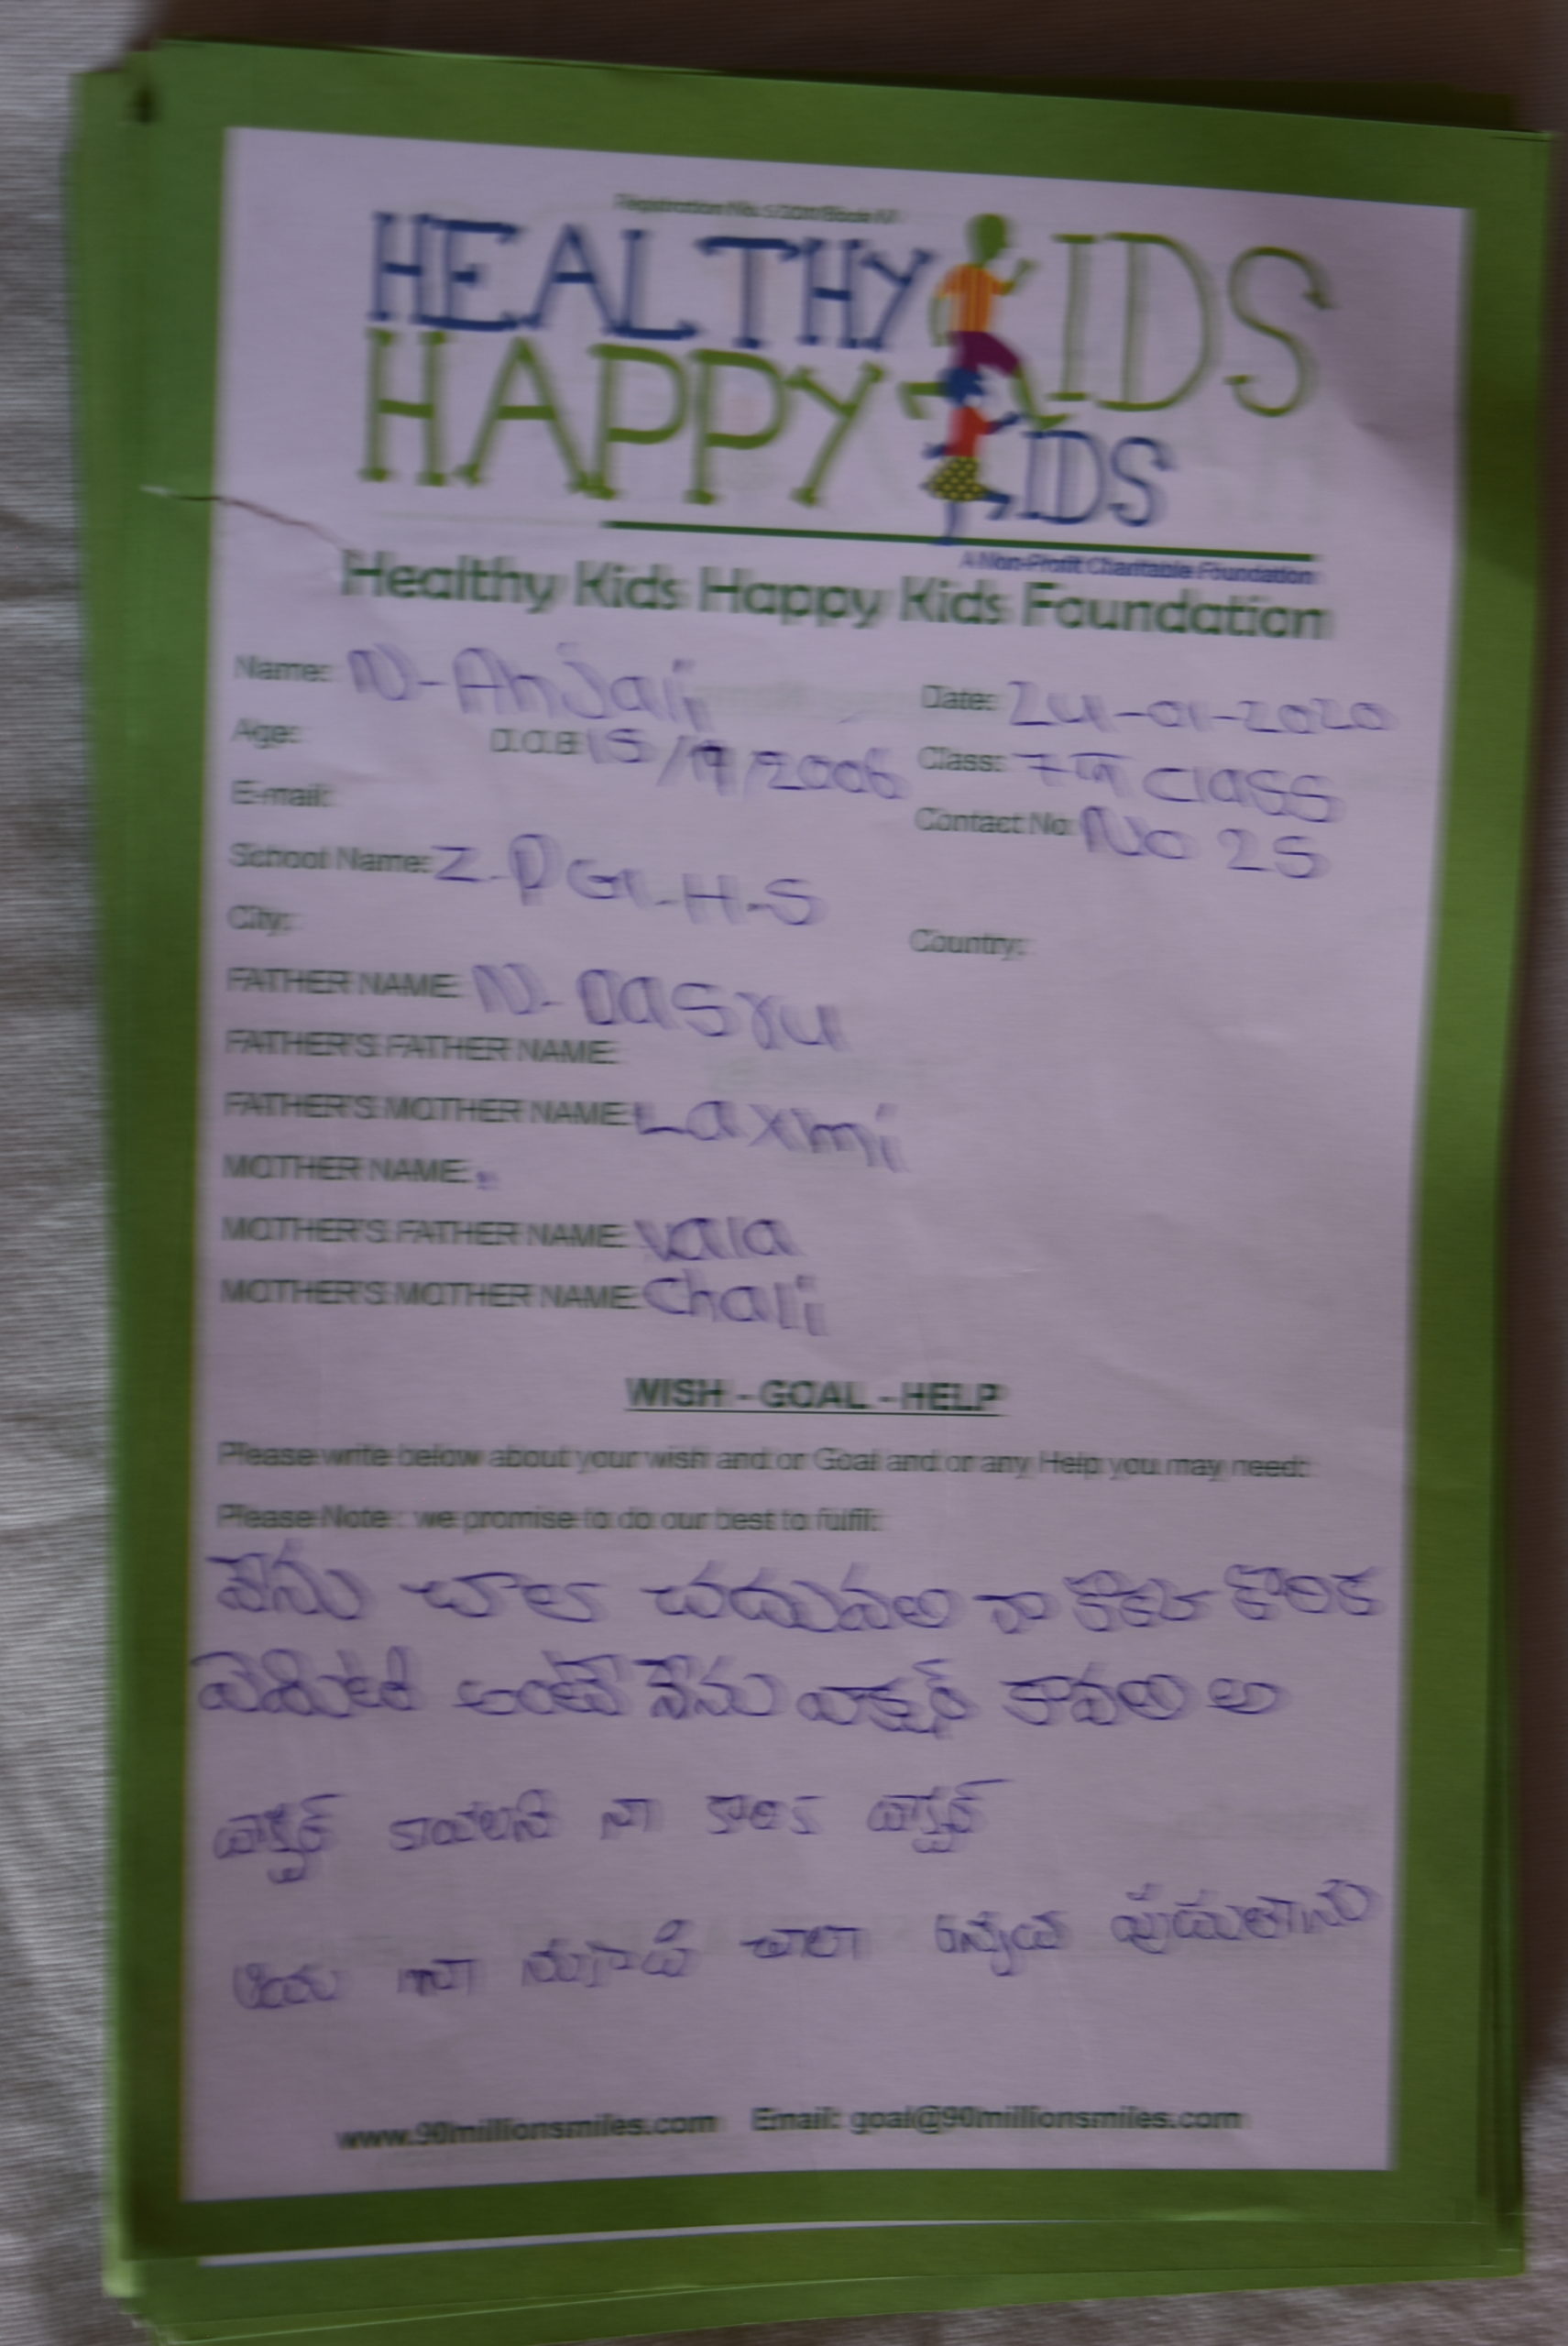 HEALTHY KIDS
HAPPY KIDS
A Non-Profit Charitable Foundation
Healthy Kids Happy Kids Foundation
Name: N-Anjali Date: 24-01-2020
Age: D.O.B 15/ /2006 Class: 7th class
E-mail: Contact No: No 25
School Name: Z-PG-H-S
City: Country:
FATHER NAME: N- Dasru
FATHER'S FATHER NAME:
FATHER'S MOTHER NAME: Laxmi
MOTHER NAME:
MOTHER'S FATHER NAME: vala
MOTHER'S MOTHER NAME: Chali
WISH - GOAL - HELP
Please write below about your wish and or Goal and or any Help you may need:
Please Note : we promise to do our best to fulfil:
నేను చాల చదువలి నా కోరిక
అంటే నేను డాక్టర్ కావలి
డాక్టర్ నా కొరిక డాక్టర్
చాలా
www.90millionsmiles.com Email: goal@90millionsmiles.com